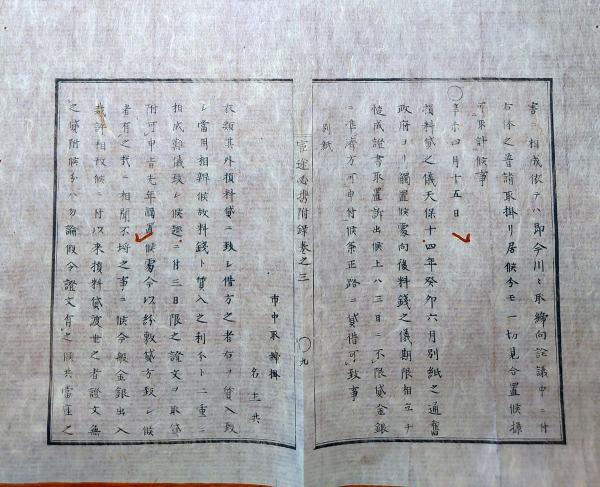 害ニ相成依テハ即今川々取締向詮議中ニ付
右体之普請取掛リ居候分モ一切見合置候様
可取計候事
四月十五日
損料貸之儀天保十四年癸卯六月別紙之通舊
政府ヨリ觸置候處向後料錢之儀期限相立チ
慥成證書取置訴出候上ハ三日ニ不限貸金銀
ニ準済方可申付候条正路ニ貸借可致事
別紙
官途必携附録巻之三
九
市中取締掛
名主共
衣類其外損料貸ニ致シ借方之者右ヲ質入致
シ當用相辨候故料錢ト質入之利分ト二重ニ
相成難儀致シ候趣ニ付三日限之證文ヲ取貸
附可申旨先年觸置候處今以紛敷貸方致シ候
者有之哉ニ相聞不埒之事ニ候今般金銀出入
裁許相改候ニ付以来損料貸渡世之者證文無
之貸附候分ハ勿論假令證文有之候共當座之